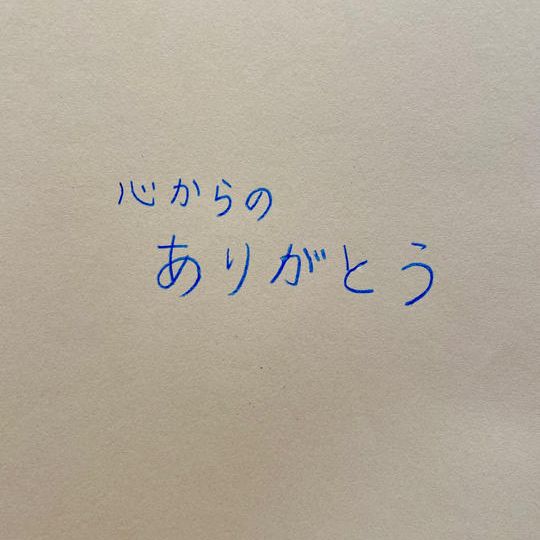 心からの
ありがとう